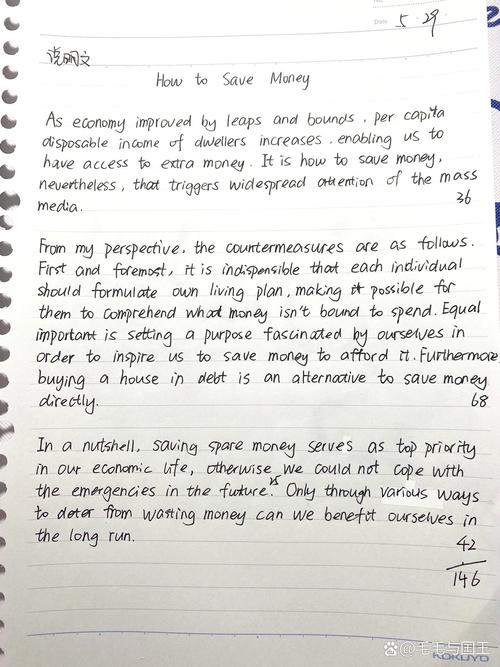 No.
Date 5·29
说明文
How to Save Money
As economy improved by leaps and bounds, per capita
disposable income of dwellers increases, enabling us to
have access to extra money. It is how to save money,
nevertheless, that triggers widespread attention of the mass
media. 36
From my perspective, the countermeasures are as follows.
First and foremost, it is indispensible that each individual
should formulate own living plan, making it possible for
them to comprehend what money isn't bound to spend. Equal
important is setting a purpose fascinated by ourselves in
order to inspire us to save money to afford it. Furthermore,
buying a house in debt is an alternative to save money
directly. 68
In a nutshell, saving spare money serves as top priority
in our economic life, otherwise we could not cope with
the emergencies in the future. Only through various ways
to deter from wasting money can we benefit ourselves in
the long run. 42
146
KOKUYO
@毛毛与国王